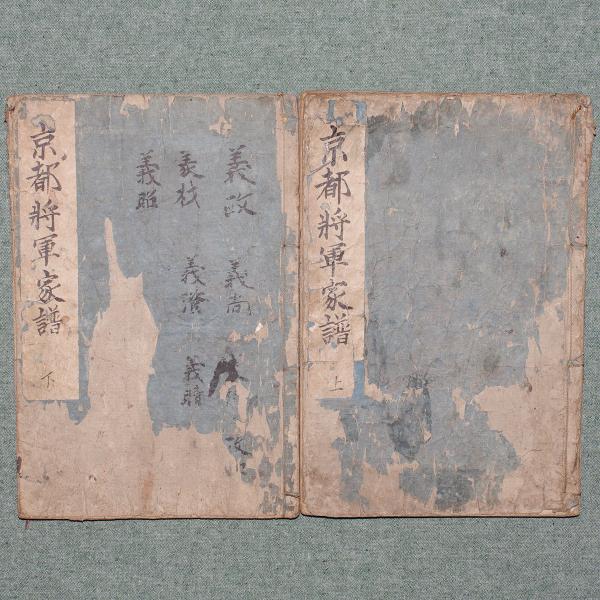 京都將軍家譜
上
京都將軍家譜
下
義政 義尚
義材 義澄 義晴
義昭